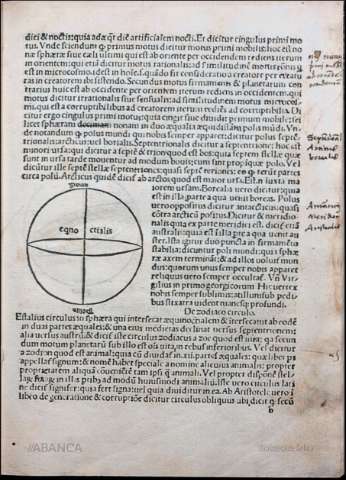 dici & noctis: quia adæq̃t diẽ artificialem nocti. Et dicitur cingulus primi mo
tus. Vnde sciendum ꝙ primus motus dicitur motus primi mobilis: hoc est no
næ sphæræ siue cæli ultimi qui est ab oriente per occidentem rediens iterum
in orientem: qui etiã dicitur motus rationalis: ad similitudinẽ motus rõnis q̃
est in microcosmo idest in hoĩe. s. quãdo fit consideratio a creatore per creatu
ras in creatorem ibi sistendo. Secundus motus firmamenti & planetarum con
trarius huic est ab occidente per orientem iterum rediens in occidentem, qui
motus dicitur irrationalis siue sensualis: ad similitudinem motus microcos
mi, qui est a corruptibilibus ad creatorem iterum rediẽs ad corruptibilia. Di
citur ergo cingulus primi motus: quia cingit siue diuidit primum mobile: sci
licet sphæram nonam in duo æqualia æquidistans polis mũdi. Vn
de notandum ꝙ polus mundi qui nobis semper apparet: dicitur polus septẽ
trionalis: arcticus: uel borealis. Septentrionalis dicitur a septentrione: hoc est
minori ursa: qui dicitur a septẽ & trion quod est bos: quia septem stellæ quæ
sunt in ursa tarde mouentur ad modum bouis: cum sint propinquæ polo. Vel
dicuntur ille septẽ stellæ septentriones: quasi septẽ teriones: eo ꝙ terũt partes
circa polũ. Arcticus quidẽ dicit̃ ab arcthos quod est maior ursa. Est.n. iuxta ma
iorem ursam. Borealis uero dicitur: quia
est in illa parte a qua uenit boreas. Polus
uero oppositus dicitur antarcticus: quasi
cõtra arcticũ positus. Dicitur & meridio
nalis: quia ex parte meridiei est. dicit̃ etiã
australis: quia est ĩ illa pte a qua uenit au
ster. Ista igitur duo puncta in firmamẽto
stabilia: dicuntur poli mundi: quia sphæ
ræ axem terminãt: & ad illos uoluit̃ mun
dus: quorum unus semper nobis apparet
reliquus uero semper occultat̃. Vñ Vir
gilius in primo georgicorum Hic uertex
nobis semper sublimis: at illum sub pedi
bus stix atra uident manesq; profundi.
polus
equo ctialis
polus
De zodiaco circulo.
Est alius circulus in sphæra qui intersecat æquinoctialem & intersecat̃ ab eodẽ
in duas partes æquales: & una eius medietas declinat uersus septentrionem:
alia uersus austrũ: & dicit̃ iste circulus zodiacus a zoe quod est uita: qa secun
dum motum planetarũ sub illo est oĩs uita in rebus inferioribus. Vel dicitur
a zodion quod est animal: quia cũ diuidat̃ in .xii. partes æquales: quælibet ps
appellat̃ signum: & nomẽ habet speciale a nomine alicuius animalis: propter
proprietatem aliquã conueniẽtẽ tam ipsi q̃ animali. Vel propter dispositiõẽ stel
larũ fixarũ in illis ptibus ad modũ huiusmodi animaliũ. Iste uero circulus lati
ne dicit̃ signifer: quia fert signa: uel quia diuiditur in ea. Ab Aristotele uero ĩ
libro de generatione & corruptiõe dicitur circulus obliquus ubi dicit ꝙ secũ
b
ABANCA